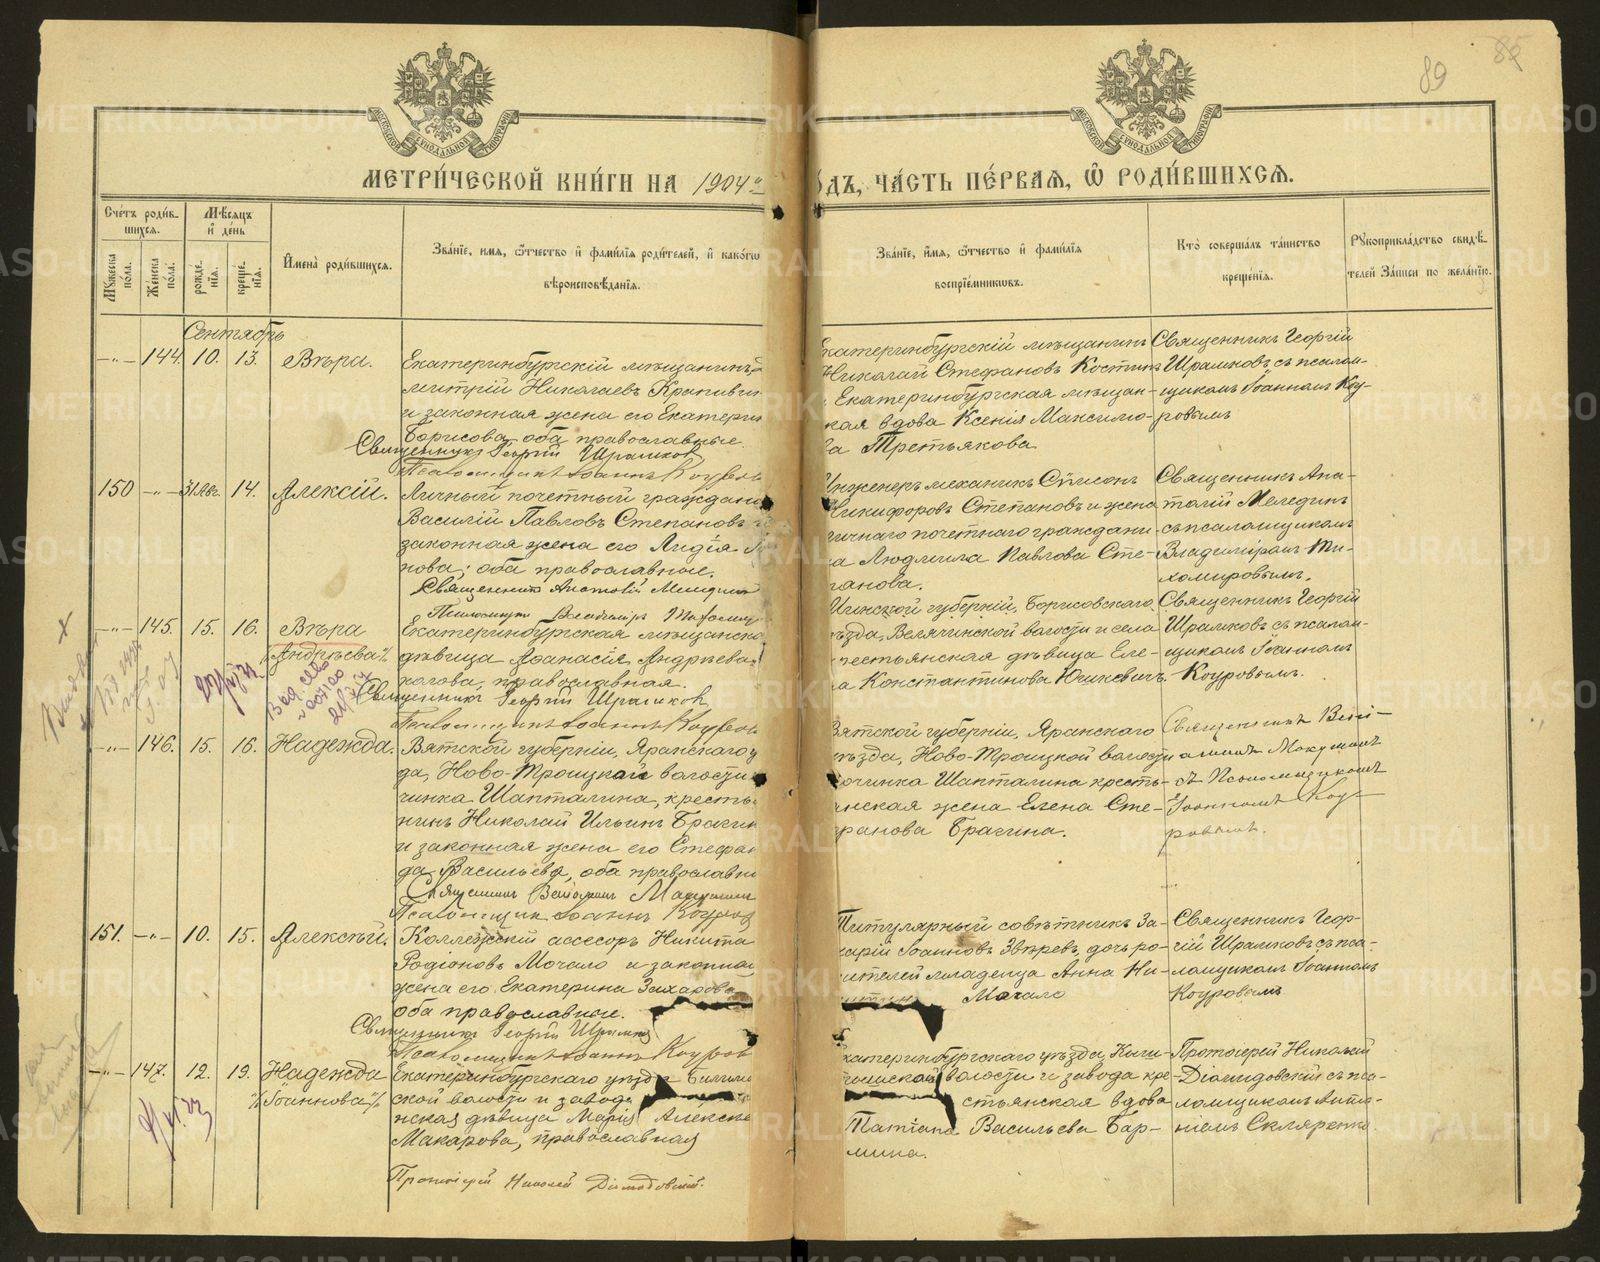 89
МЕТРИ́ЧЕСКОЙ КНИ́ГИ НА 1904
ДЪ, ЧА́СТЬ ПЕ́РВАЯ, Ѡ РОДИ́ВШИХСЯ.
Сче́тъ роди́в-
шихся.
Му́жеска по́ла.
Же́нска по́ла.
Мѣ́сяцъ и де́нь
рожде́-нія.
креще́-нія.
Имена̀ роди́вшихся.
Зва́ніе, имя, ѻ҆́тчество и҆ фами́лія роди́телей, и҆ како́гѡ
вѣроисповѣ́данія.
Зва́ніе, и҆́мя, ѻ҆́тчество и҆ фами́лія
воспріе́мниковъ.
Кто̀ соверша́лъ та́инство
креще́нія.
Рукоприкла́дство свидѣ́-
телей за́писи по жела́нію.
Сентябрь
—"— 144. 10. 13. Вѣра.
Екатеринбургскій мѣщанинъ
митрій Николаевъ
и законная жена его Екатерин
Борисова, оба православные.
Священникъ Георгій Шрамковъ
Псаломщикъ Іоаннъ Коуров
Екатеринбургскій мѣщанинъ
Николай Стефановъ Костинъ
Екатеринбургская мѣщан-
кая вдова Ксенія Максимо-
ва Третьякова
Священникъ Георгій
Шрамковъ съ псалом-
щикомъ Іоанномъ Коу-
ровымъ
150 —"— 31 Авг. 14. Алексій.
Личный почетный граждани
Василій Павловъ Степановъ и
законная жена его Лидія
нова; оба православные.
Священникъ Анатолій Меледин
Псаломщикъ Владиміръ Тихомир
Инженеръ механикъ Симеонъ
Никифоровъ Степановъ и жена
личнаго почетнаго граждани-
на Людмила Павлова Сте-
панова.
Священникъ Ана-
толій Меледин
съ псаломщикомъ
Владиміромъ Ти-
хомировымъ.
—"— 145. 15. 16. Вѣра
"Андрѣева"
Екатеринбургская мѣщанска
дѣвица Аѳанасія Андрѣева
православная.
Священникъ Георгій Шрамковъ
Псаломщикъ Іоаннъ Коуров
Минской губерніи, Борисовскаго
ѣзда, Велятинской волости и села
крестьянская дѣвица Еле-
на Константинова Юшкевичъ.
Священникъ Георгій
Шрамковъ съ псалом-
щикомъ Іоанномъ
Коуровымъ.
—"— 146. 15. 16. Надежда.
Вятской губерніи, Яранскаго у
да, Ново-Троицкой волости
чинка Шапталина, кресть
нинъ Николай Ильинъ Брагин
и законная жена его Стефан
да Васильева, оба православн
Священникъ Веніаминъ
Псаломщикъ Іоаннъ Коуров
Вятской губерніи, Яранскаго
ѣзда, Ново-Троицкой волости
очинка Шапталина кресть-
янская жена Елена Сте-
фанова Брагина.
Священникъ Вені-
аминъ
съ Псаломщикомъ
Іоанномъ Коу-
ровымъ.
151. —"— 10. 15. Алексѣй.
Коллежскій ассесоръ Никита
Родіоновъ Мочало и законная
жена его Екатерина Захарова
оба православные.
Священникъ Георгій Шрамков
Псаломщикъ Іоаннъ Коуров
Титулярный совѣтникъ За-
харій Іоанновъ Звѣревъ, дочь ро-
дителей младенца Анна Ни-
Мочало
Священникъ Геор-
гій Шрамковъ съ пса-
ломщикомъ Іоанномъ
Коуровымъ
—"— 147. 12. 19. Надежда
"Іоаннова"
Екатеринбургскаго уѣзда Билим
ской волости и завода
нская дѣвица Марія Алексѣе
Макарова, православная
Протоіерей Николай Діомидовскій.
катеринбургскаго уѣзда
волости и завода кре-
стьянская вдова
Татіана Васильева Бар-
мина.
Протоіерей Николай
Діомидовскій съ пса-
ломщикомъ Анто-
ніемъ Скляренко.
METRIKI.GASO-URAL.RU